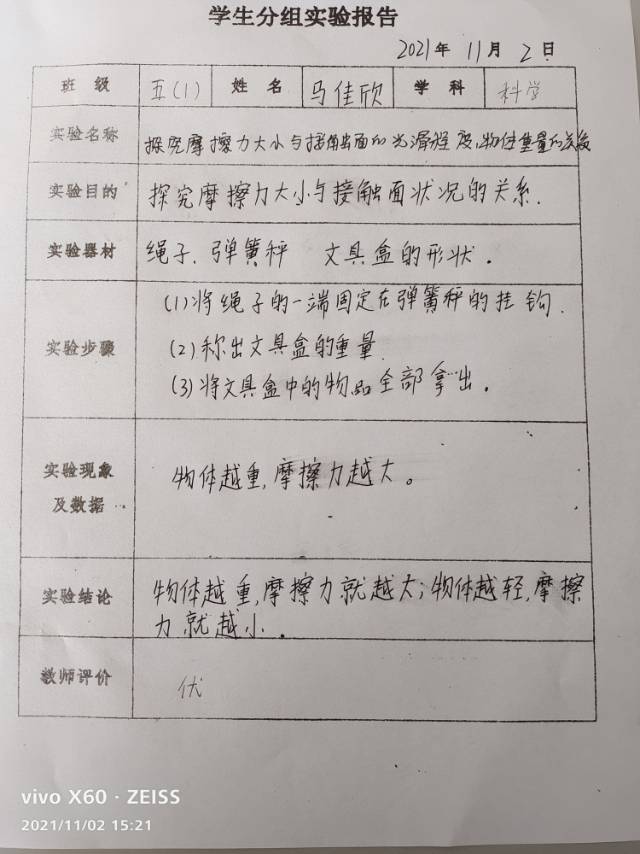 学生分组实验报告
2021年 11月 2日
班级 五(1) 姓名 马佳欣 学科 科学
实验名称 探究摩擦力大小与接触面的光滑程度、物体重量的关系
实验目的 探究摩擦力大小与接触面状况的关系.
实验器材 绳子、弹簧秤 文具盒的形状.
(1)将绳子的一端固定在弹簧秤的挂钩.
实验步骤 (2)称出文具盒的重量.
(3)将文具盒中的物品全部拿出.
实验现象
及数据 物体越重,摩擦力越大。
实验结论 物体越重,摩擦力就越大;物体越轻,摩擦
力就越小.
教师评价 伏
vivo X60 · ZEISS
2021/11/02 15:21